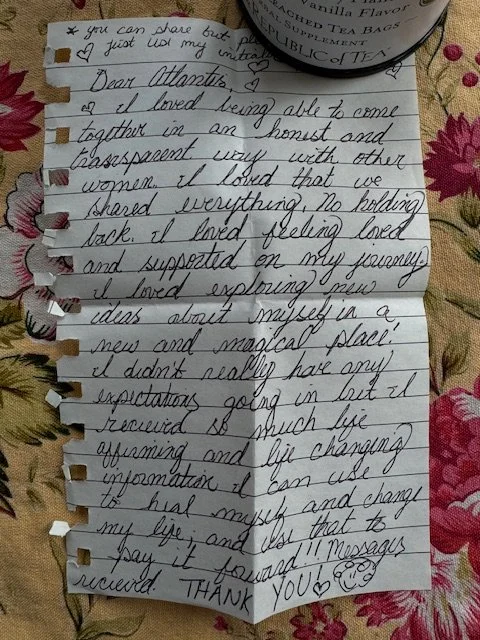 * you can share but
just use my initial
Vanilla Flavor
BLEACHED TEA BAGS
SUPPLEMENT
REPUBLIC of TEA
Dear Atlantis,
I loved being able to come
together in an honest and
transparent way with other
women. I loved that we
shared everything, no holding
back. I loved feeling loved
and supported on my journey.
I loved exploring new
ideas about myself in a
new and magical place!
I didn't really have any
expectations going in but I
recieved so much life
affirming and life changing
information I can use
to heal myself and change
my life, and use that to
pay it forward!! Messages
recieved. THANK YOU!